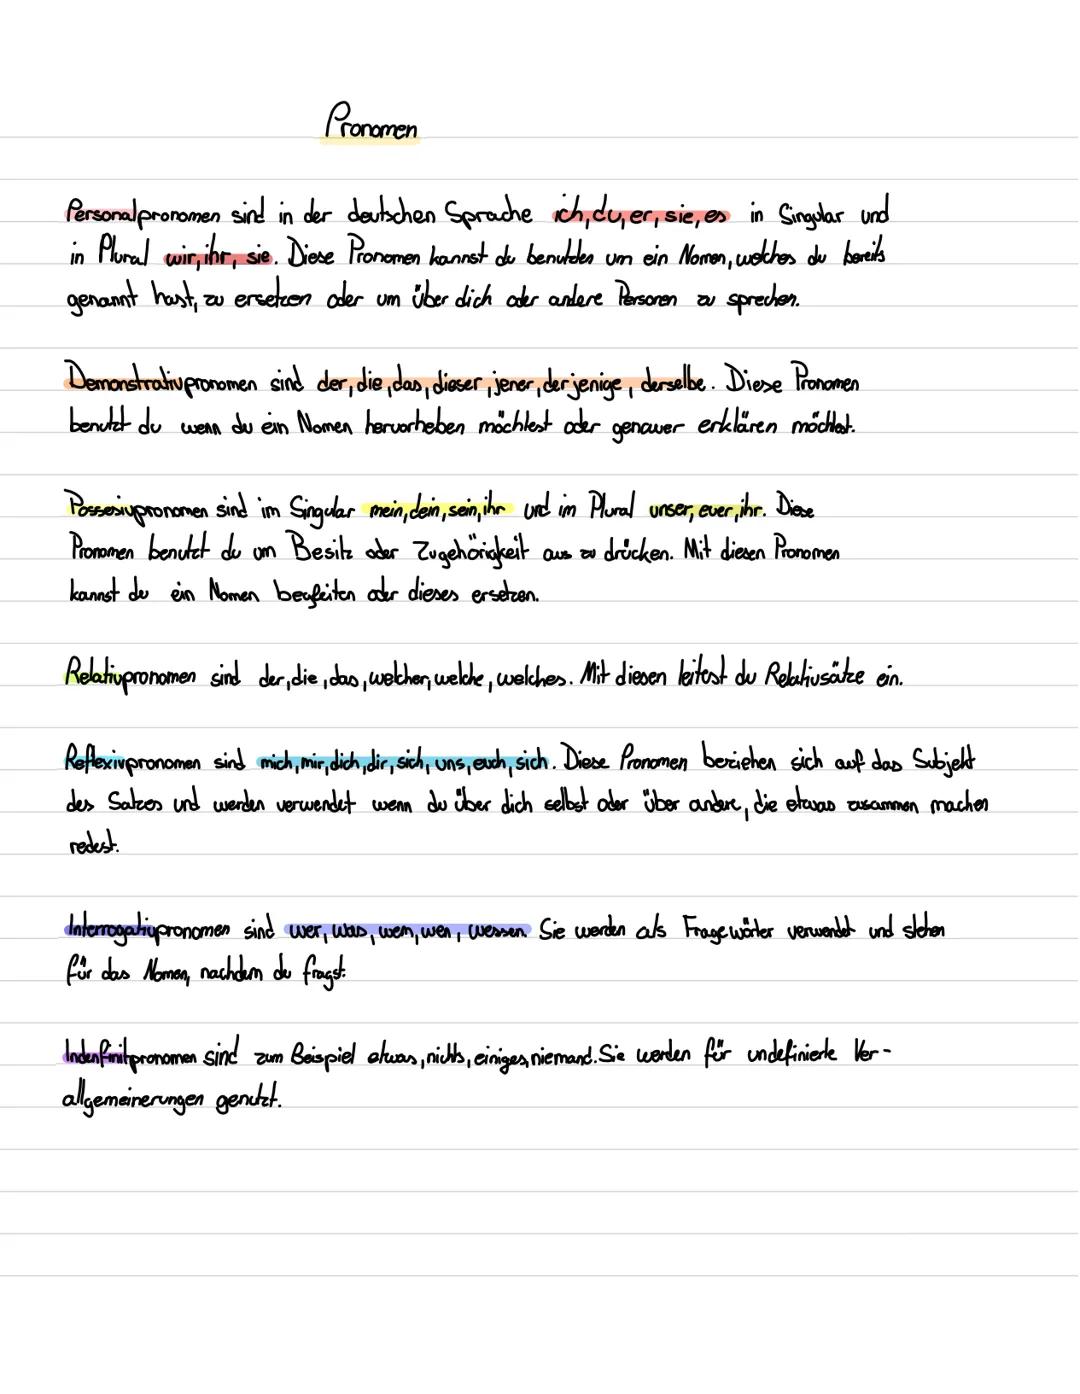 Pronomen
Personalpronomen sind in der deutschen Sprache ich, du, er, sie, es in Singular und
in Plural wir, ihr, sie. Diese Pronomen kannst du benutzten um ein Nomen, welches du bereits
genannt hast, zu ersetzen oder um über dich oder andere Personen zu sprechen.
Demonstrativpronomen sind der, die, das, dieser, jener, derjenige, derselbe. Diese Pronomen
benutzt du wenn du ein Nomen hervorheben möchtest oder genauer erklären möchtest.
Possesivpronomen sind im Singular mein, dein, sein, ihr und im Plural unser, euer, ihr. Diese
Pronomen benutzt du um Besitz oder Zugehörigkeit aus zu drücken. Mit diesen Pronomen
kannst du ein Nomen begleiten oder dieses ersetzen.
Relativpronomen sind der, die, das, welcher, welche, welches. Mit diesen leitest du Relativsätze ein.
Reflexivpronomen sind mich, mir, dich, dir, sich, uns, euch, sich. Diese Pronomen beziehen sich auf das Subjekt
des Satzes und werden verwendet wenn du über dich selbst oder über andere, die etwas zusammen machen
redest.
Interrogativpronomen sind wer, was, wem, wen, wessen. Sie werden als Fragewörter verwendet und stehen
für das Nomen, nachdem du fragst.
Indenfinitpronomen sind zum Beispiel etwas, nichts, einiges, niemand. Sie werden für undefinierte Ver-
allgemeinerungen genutzt.